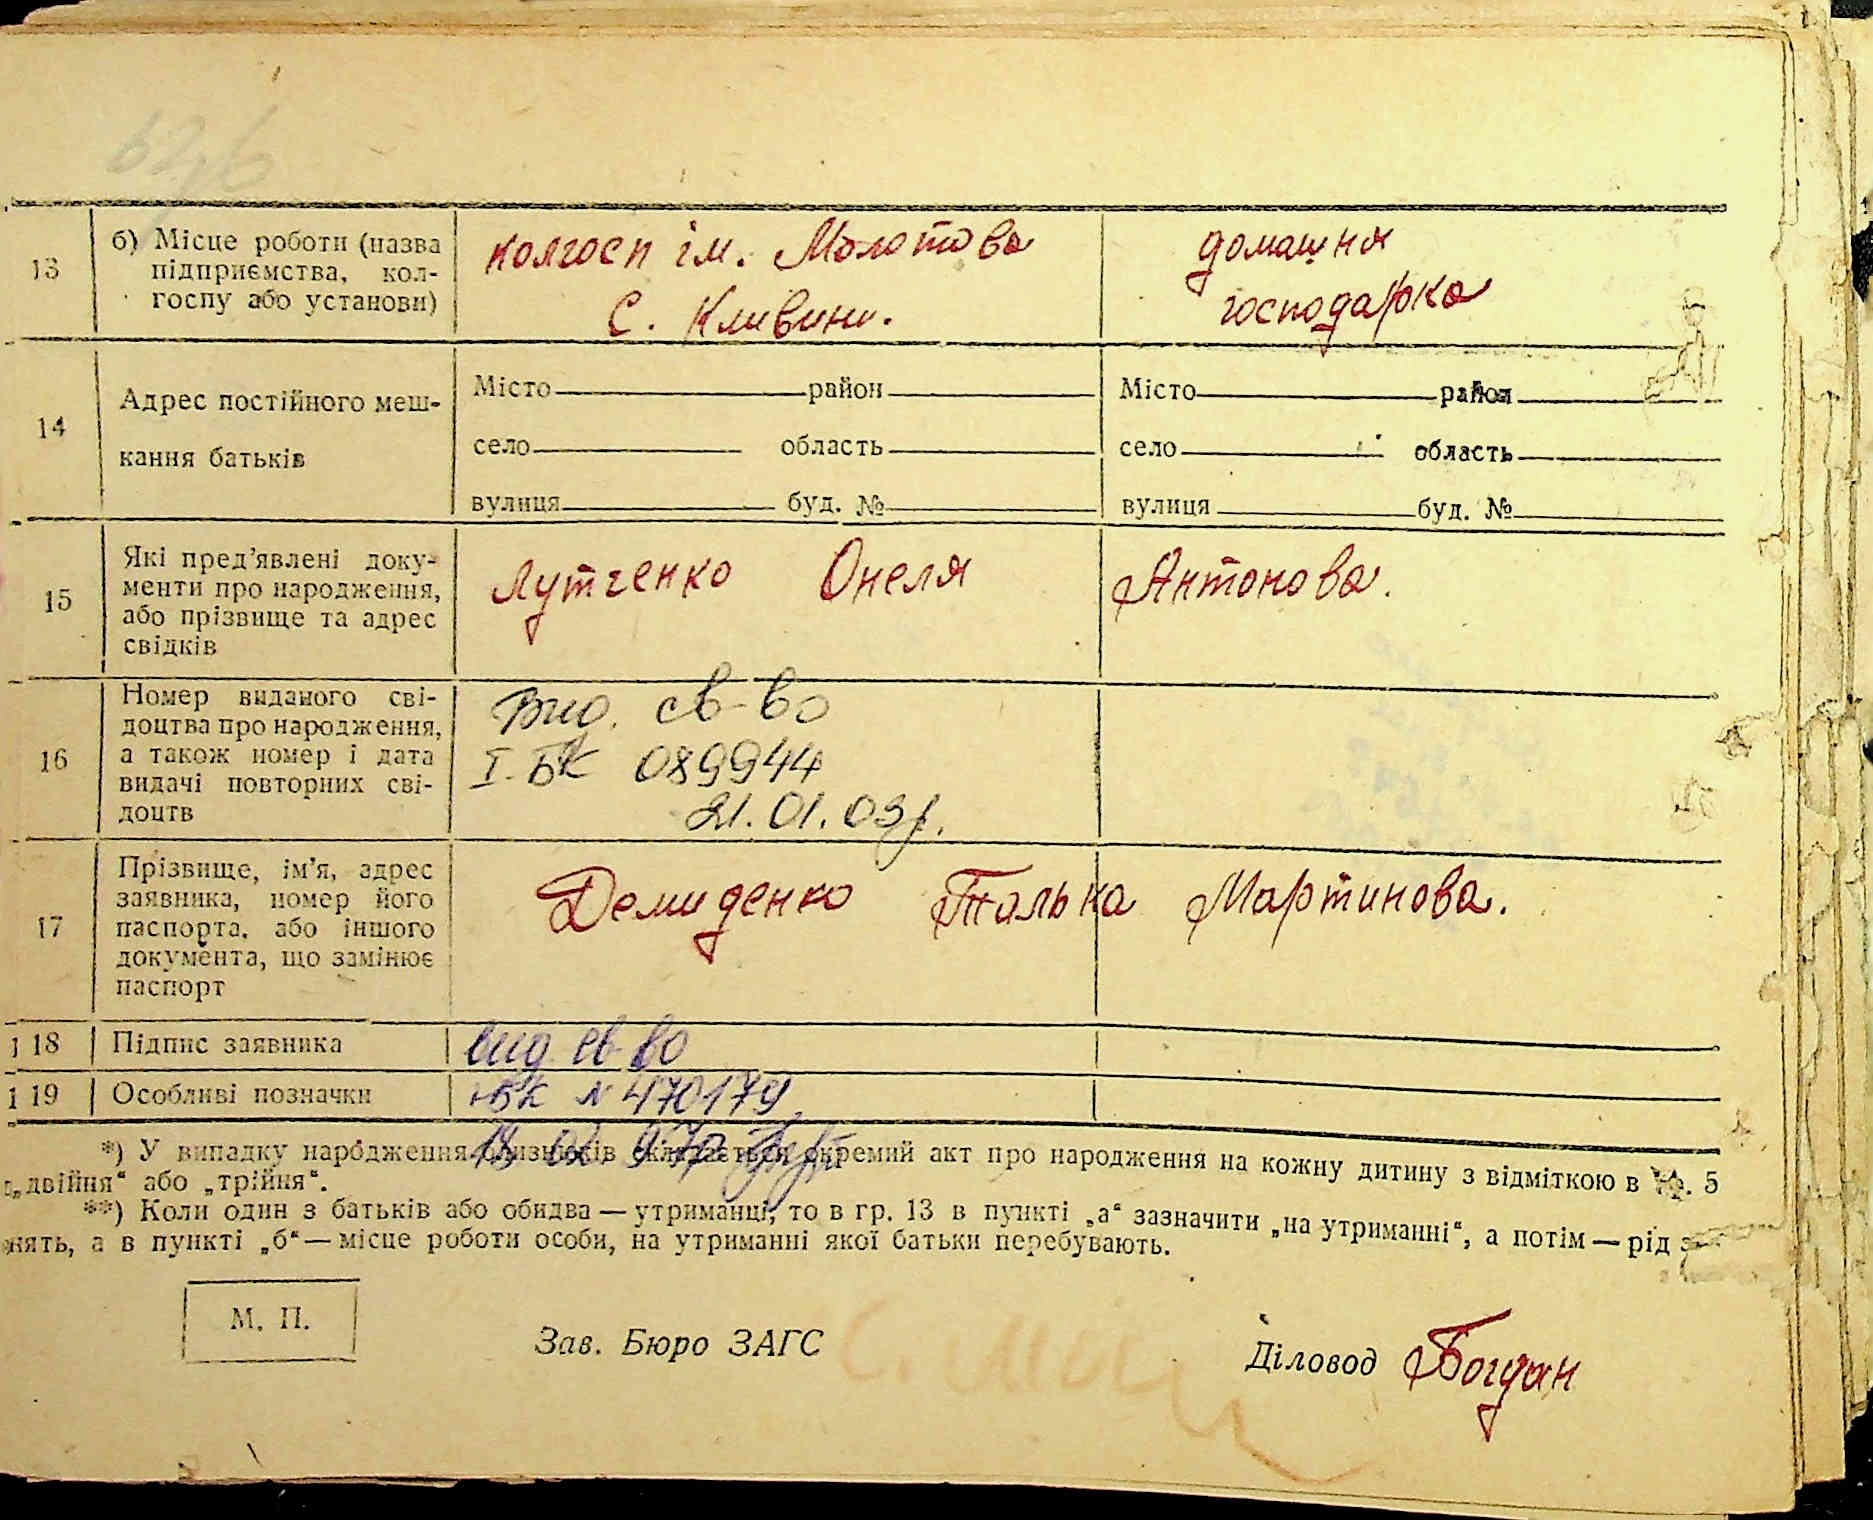 13 б) Місце роботи (назва підприємства, кол-госпу або установи)
колгосп ім. Молотова
с. Кливини.
домашня
господарка
14 Адрес постійного меш-
кання батьків
Місто район
село область
вулиця буд. №
Місто район
село область
вулиця буд. №
15 Які пред'явлені доку-
менти про народження,
або прізвище та адрес
свідків
Лутченко Онеля Антонова.
16 Номер виданого сві-
доцтва про народження,
а також номер і дата
видачі повторних сві-
доцтв
Вид. св-во
І-БК 089944
21.01.03р.
17 Прізвище, ім'я, адрес
заявника, номер його
паспорта, або іншого
документа, що замінює
паспорт
Демиденко Талька Мартинова.
18 Підпис заявника
вид св-во
19 Особливі позначки
І-БК № 470179
*) У випадку народження близнюків складається окремий акт про народження на кожну дитину з відміткою в гр. 5
„двійня“ або „трійня“.
**) Коли один з батьків або обидва — утриманці, то в гр. 13 в пункті „а“ зазначити „на утриманні“, а потім — рід
а в пункті „б“ — місце роботи особи, на утриманні якої батьки перебувають.
М. П.
Зав. Бюро ЗАГС
Діловод Богдан